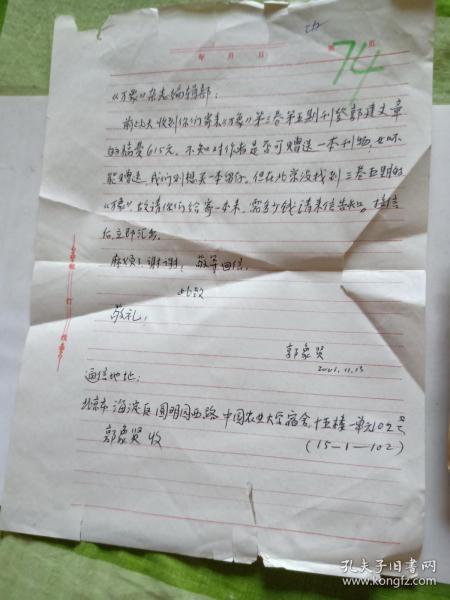 年 月 日
第 页
74
《万象》杂志编辑部:
前些天收到你们寄来《万象》第三卷第五期刊登郭建文章
的稿费615元。不知对作者是否可赠送一本刊物,如不
能赠送,我们则想买一本留存。但在北京没找到三卷五期的
《万象》故请你们给寄一本来,需多少钱请来信告知。接信
后,立即汇出。
麻烦了,谢谢! 敬等回信。
此致
敬礼!
郭象贤
2001.11.13
通信地址:
北京市海淀区圆明园西路 中国农业大学宿舍十五楼一单元102号
郭象贤 收
(15—1—102)
装 订 线
孔夫子旧书网
www.kongfz.com